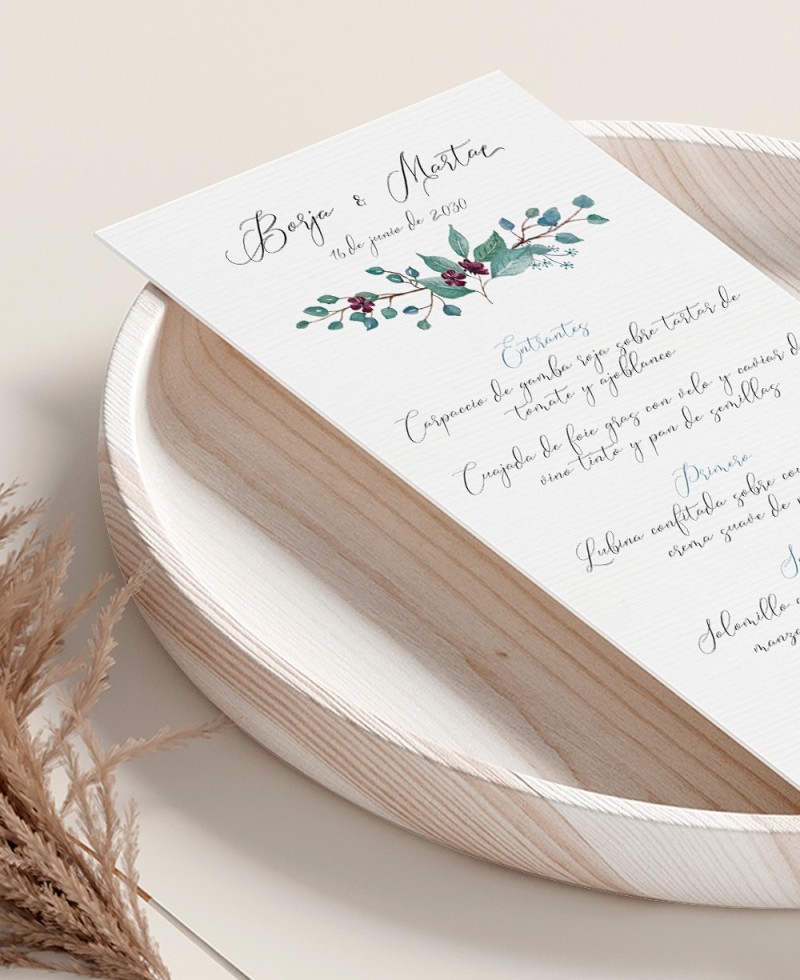 Borja & Marta
16 de junio de 2030
Entrantes
Carpaccio de gamba roja sobre tartar de
tomate y ajoblanco
Cuajada de foie gras con velo y caviar d
vino tinto y pan de semillas
Primero
Lubina confitada sobre co
crema suave de
Solomillo
manza